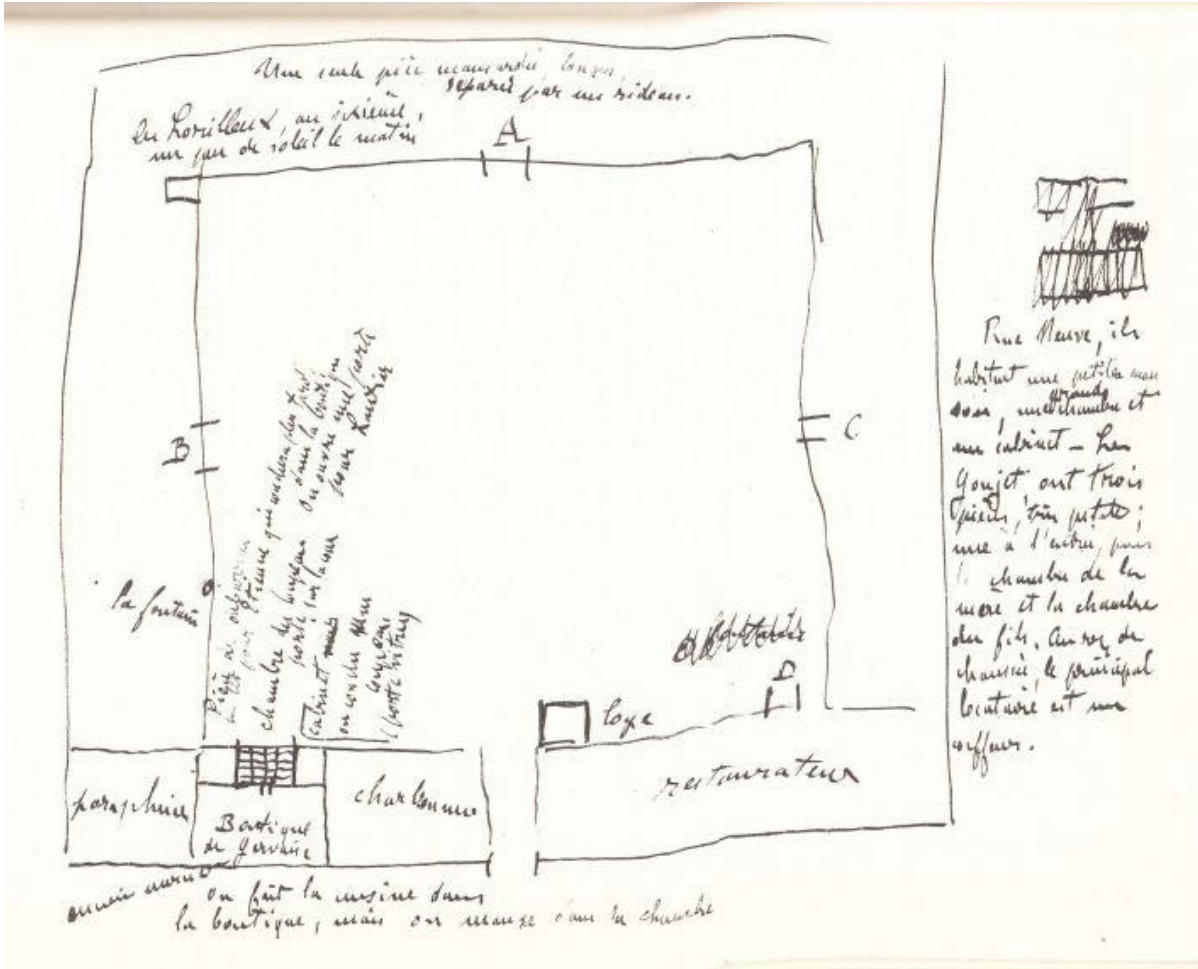 Une seule pièce mansardée, longue,
séparés par un rideau.
Les Lorilleux, au sixième,
un peu de soleil le matin
A
B
C
la fontaine
chambre des Coupeau
porte sur la cour
dans la boutique
on ouvre une porte
pour Lantier
cabinet
D
loge
restaurateur
parapluies
Boutique
de Gervaise
charbonnier
on fait la cuisine dans
la boutique, mais on mange dans la chambre
Rue Neuve, ils
habitent une petite mai
son, une grande chambre et
un cabinet – Les
Goujet ont trois
pièces, très petites;
une à l'entrée, puis
la chambre de la
mère et la chambre
du fils. Au rez de
chaussée, le principal
locataire est un
coiffeur.